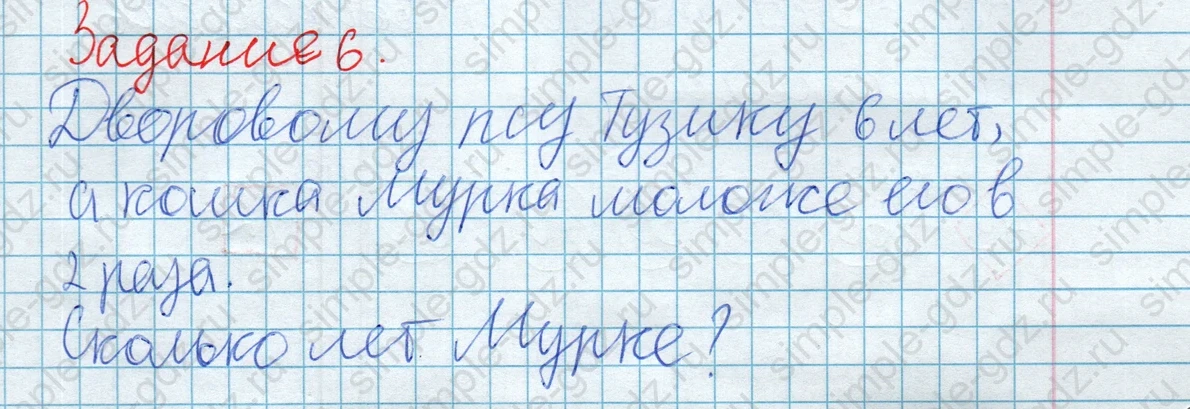 Задание 6.
Дворовому псу Тузику 6 лет,
а кошка Мурка моложе его в
2 раза.
Сколько лет Мурке?